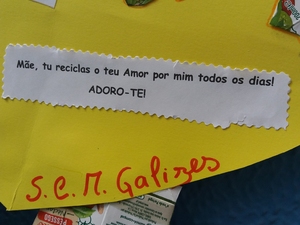 Mãe, tu reciclas o teu Amor por mim todos os dias!
ADORO-TE!
S.C.M. Galizes